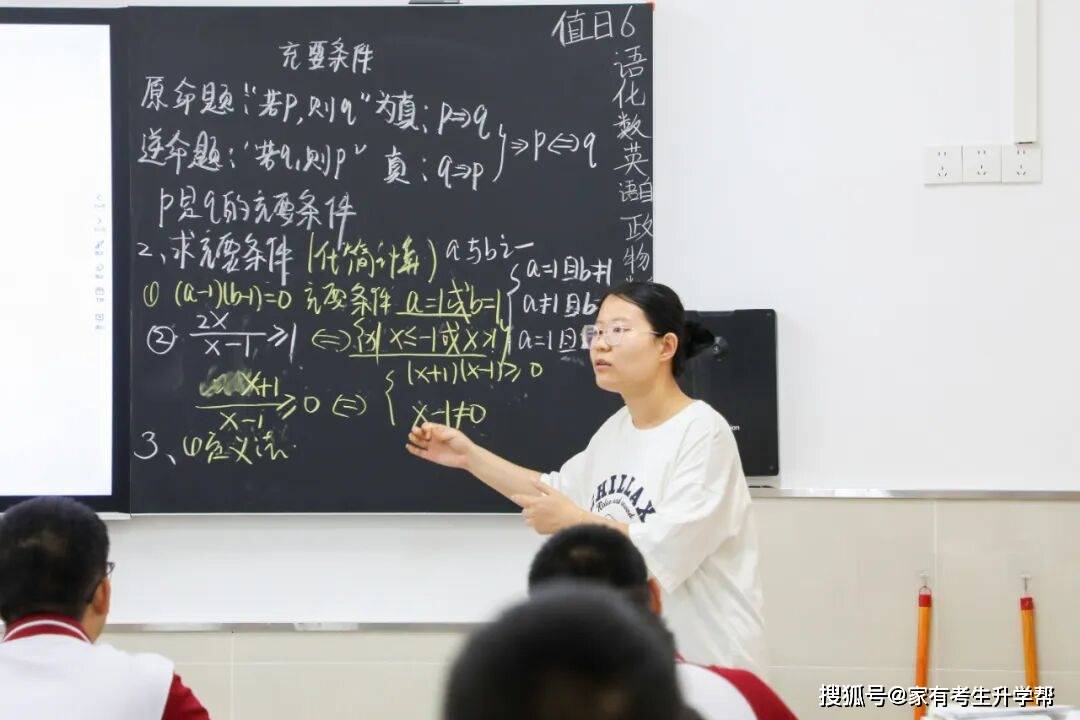 值日6
充要条件
原命题:“若p,则q”为真:p⇒q
逆命题:“若q,则p” 真:q⇒p
⇒p⇔q
p是q的充要条件
2、求充要条件(化简计算)
a与b之一
① (a-1)(b-1)=0 充要条件 a=1或b=1
a=1且b≠1
a≠1且b
a=1且
② 2x/x-1 ≥1 ⇔ {x|x≤-1或x>1}
x+1/x-1 ≥0 ⇔ { (x+1)(x-1)≥0
x-1≠0
3、①定义法
语
化
数
英
语自
政
物
CHILLAX
搜狐号@家有考生升学帮